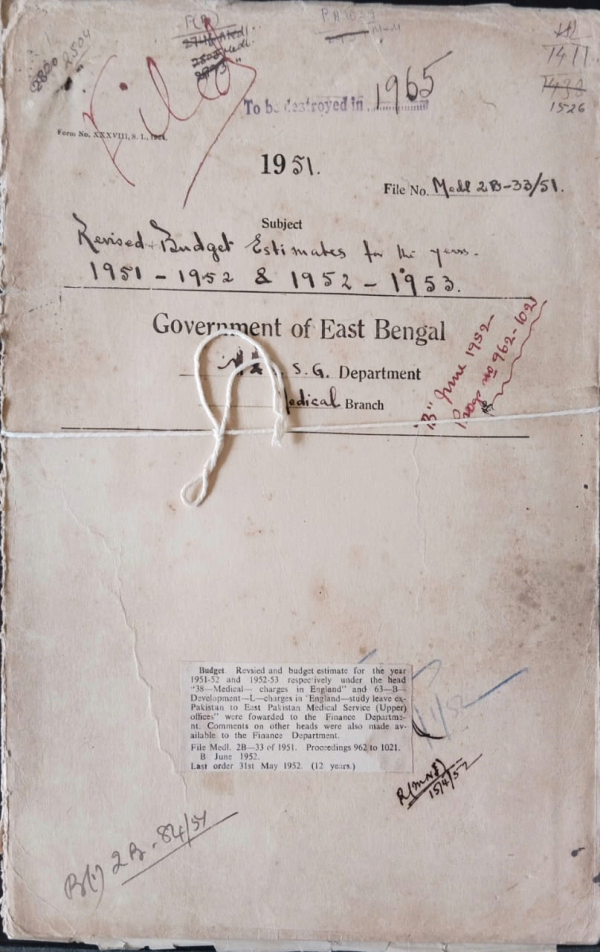 2820 2504
P(B)
1411
1526
Filed
To be destroyed in 1965
Form No. XXXVIII, S. I.,
1951.
File No. Medl 2B-33/51.
Subject
Revised & Budget Estimates for the years.
1951 - 1952 & 1952 - 1953.
Government of East Bengal
S. G. Department
Medical Branch
"B" June 1952
Progs no 962-1021
Budget. Revsied and budget estimate for the year
1951-52 and 1952-53 respectively under the head
"38—Medical— charges in England" and 63—B—
Development—L—charges in England—study leave ex-
Pakistan to East Pakistan Medical Service (Upper)
offices" were fowarded to the Finance Departme-
nt. Comments on other heads were also made av-
ailable to the Finance Department.
File Medl. 2B—33 of 1951. Proceedings 962 to 1021.
B June 1952.
Last order 31st May 1952. (12 years.)
15/4/52
B(1) 2B-84/51